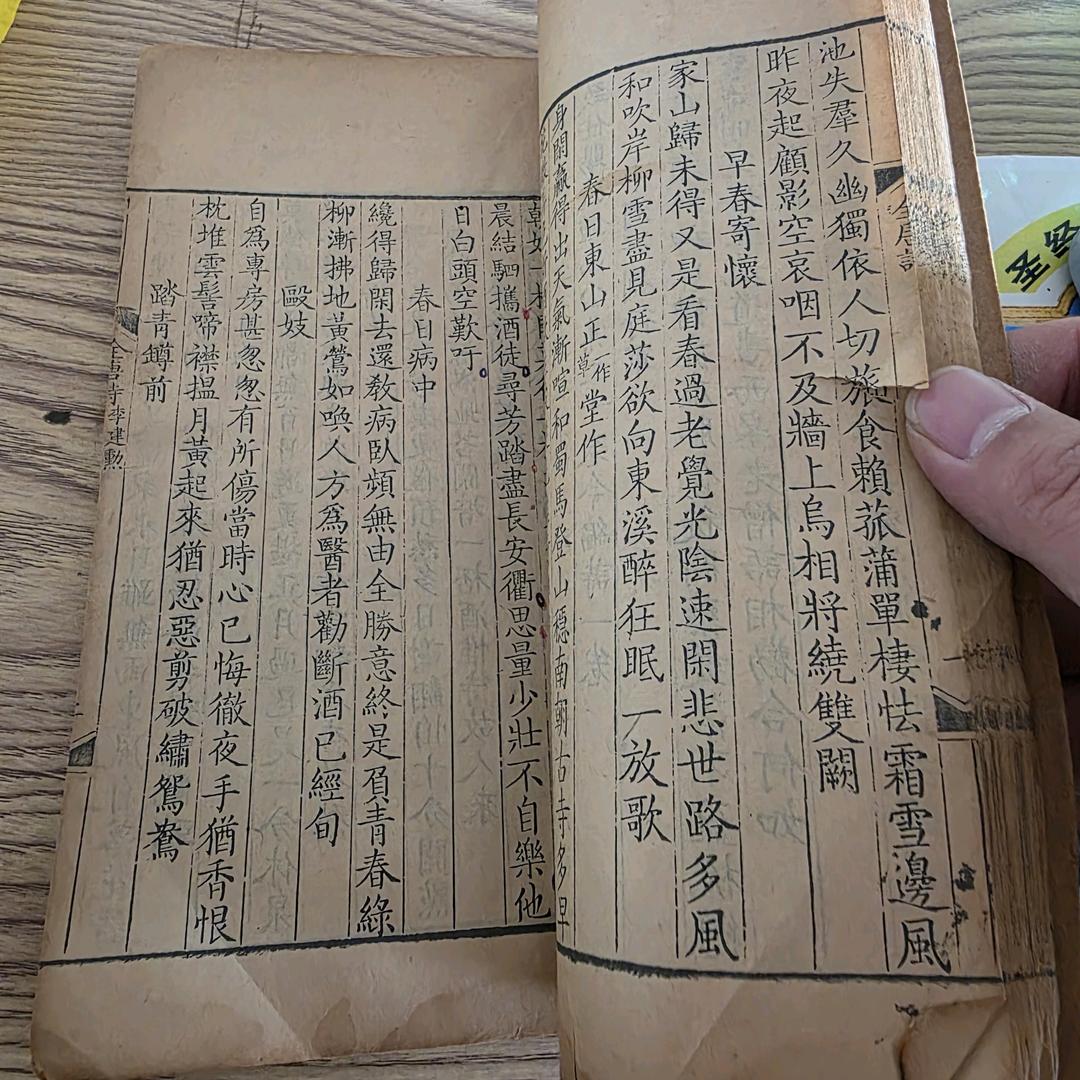 池失羣久幽獨依人切旅食賴菰蒲單棲怯霜雪邊風
昨夜起顧影空哀咽不及牆上烏相將繞雙闕
早春寄懷
家山歸未得又是看春過老覺光陰速閑悲世路多風
和吹岸柳雪盡見庭莎欲向東溪醉狂眠一放歌
春日東山正一作草堂作
身閑贏得出天氣漸暄和蜀馬登山穩南朝古寺多早
晨結駟攜酒徒尋芳踏盡長安衢思量少壯不自樂他
日白頭空歎吁
春日病中
纔得歸閑去還教病臥頻無由全勝意終是負青春綠
柳漸拂地黃鶯如喚人方為醫者勸斷酒已經旬
毆妓
自為專房甚忽忽有所傷當時心已悔徹夜手猶香恨
枕堆雲髻啼襟搵月黃起來猶忍惡剪破繡鴛鴦
踏青鐏前
全唐詩
李建勳